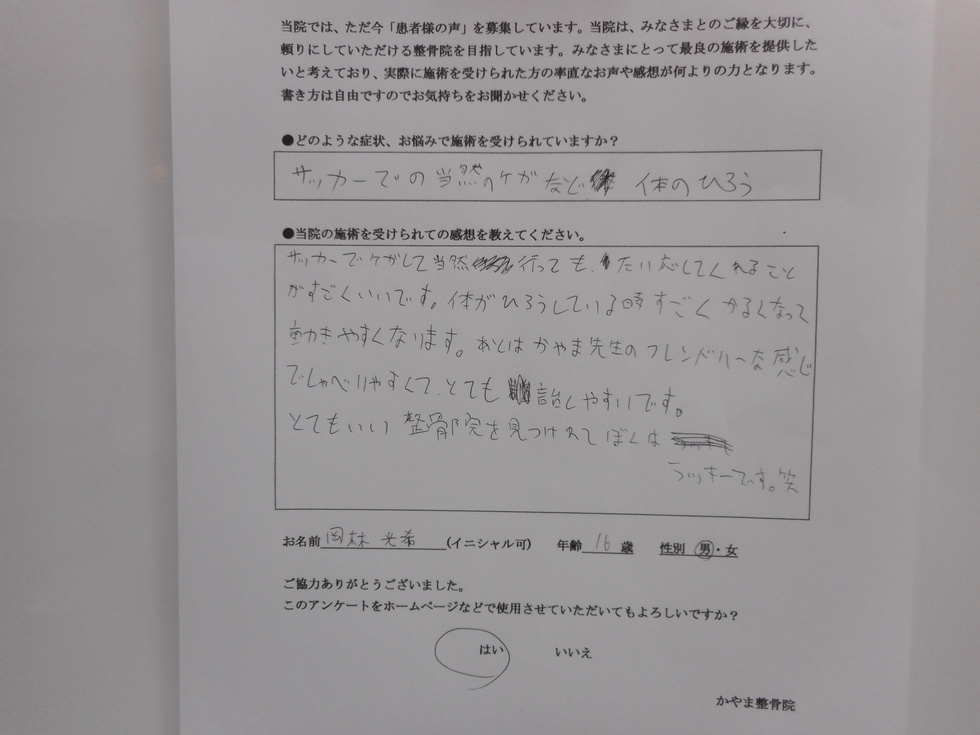 当院では、ただ今「患者様の声」を募集しています。当院は、みなさまとのご縁を大切に、
頼りにしていただける整骨院を目指しています。みなさまにとって最良の施術を提供した
いと考えており、実際に施術を受けられた方の率直なお声や感想が何よりの力となります。
書き方は自由ですのでお気持ちをお聞かせください。
●どのような症状、お悩みで施術を受けられていますか？
サッカーでの当然のケガなど 体のひろう
●当院の施術を受けられての感想を教えてください。
サッカーでケガして当然行っても、たい応してくれること
がすごくいいです。体がひろうしている時すごくかるくなって
動きやすくなります。あとはかやま先生のフレンドリーな感じ
でしゃべりやすくて、とても話しやすいです。
とてもいい整骨院を見つけれてぼくは
ラッキーです。笑
お名前 岡林 光希 (イニシャル可) 年齢 16 歳 性別 男・女
ご協力ありがとうございました。
このアンケートをホームページなどで使用させていただいてもよろしいですか？
はい いいえ
かやま整骨院